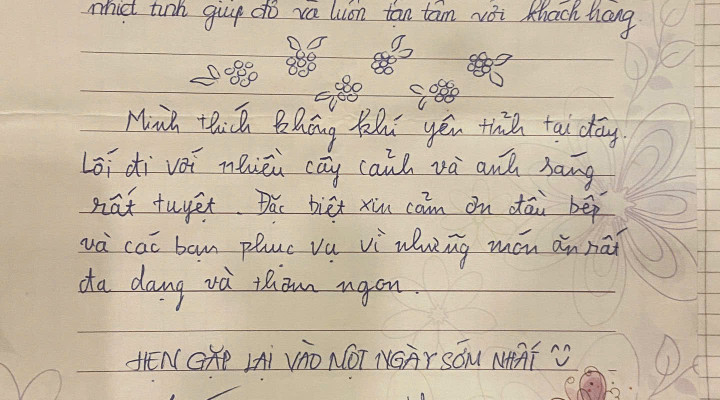 nhiệt tình giúp đỡ và luôn tận tâm với khách hàng.
Mình thích không khí yên tĩnh tại đây.
Lối đi với nhiều cây cảnh và ánh sáng
rất tuyệt. Đặc biệt xin cảm ơn đầu bếp
và các bạn phục vụ vì những món ăn rất
đa dạng và thơm ngon.
HẸN GẶP LẠI VÀO MỘT NGÀY SỚM NHẤT